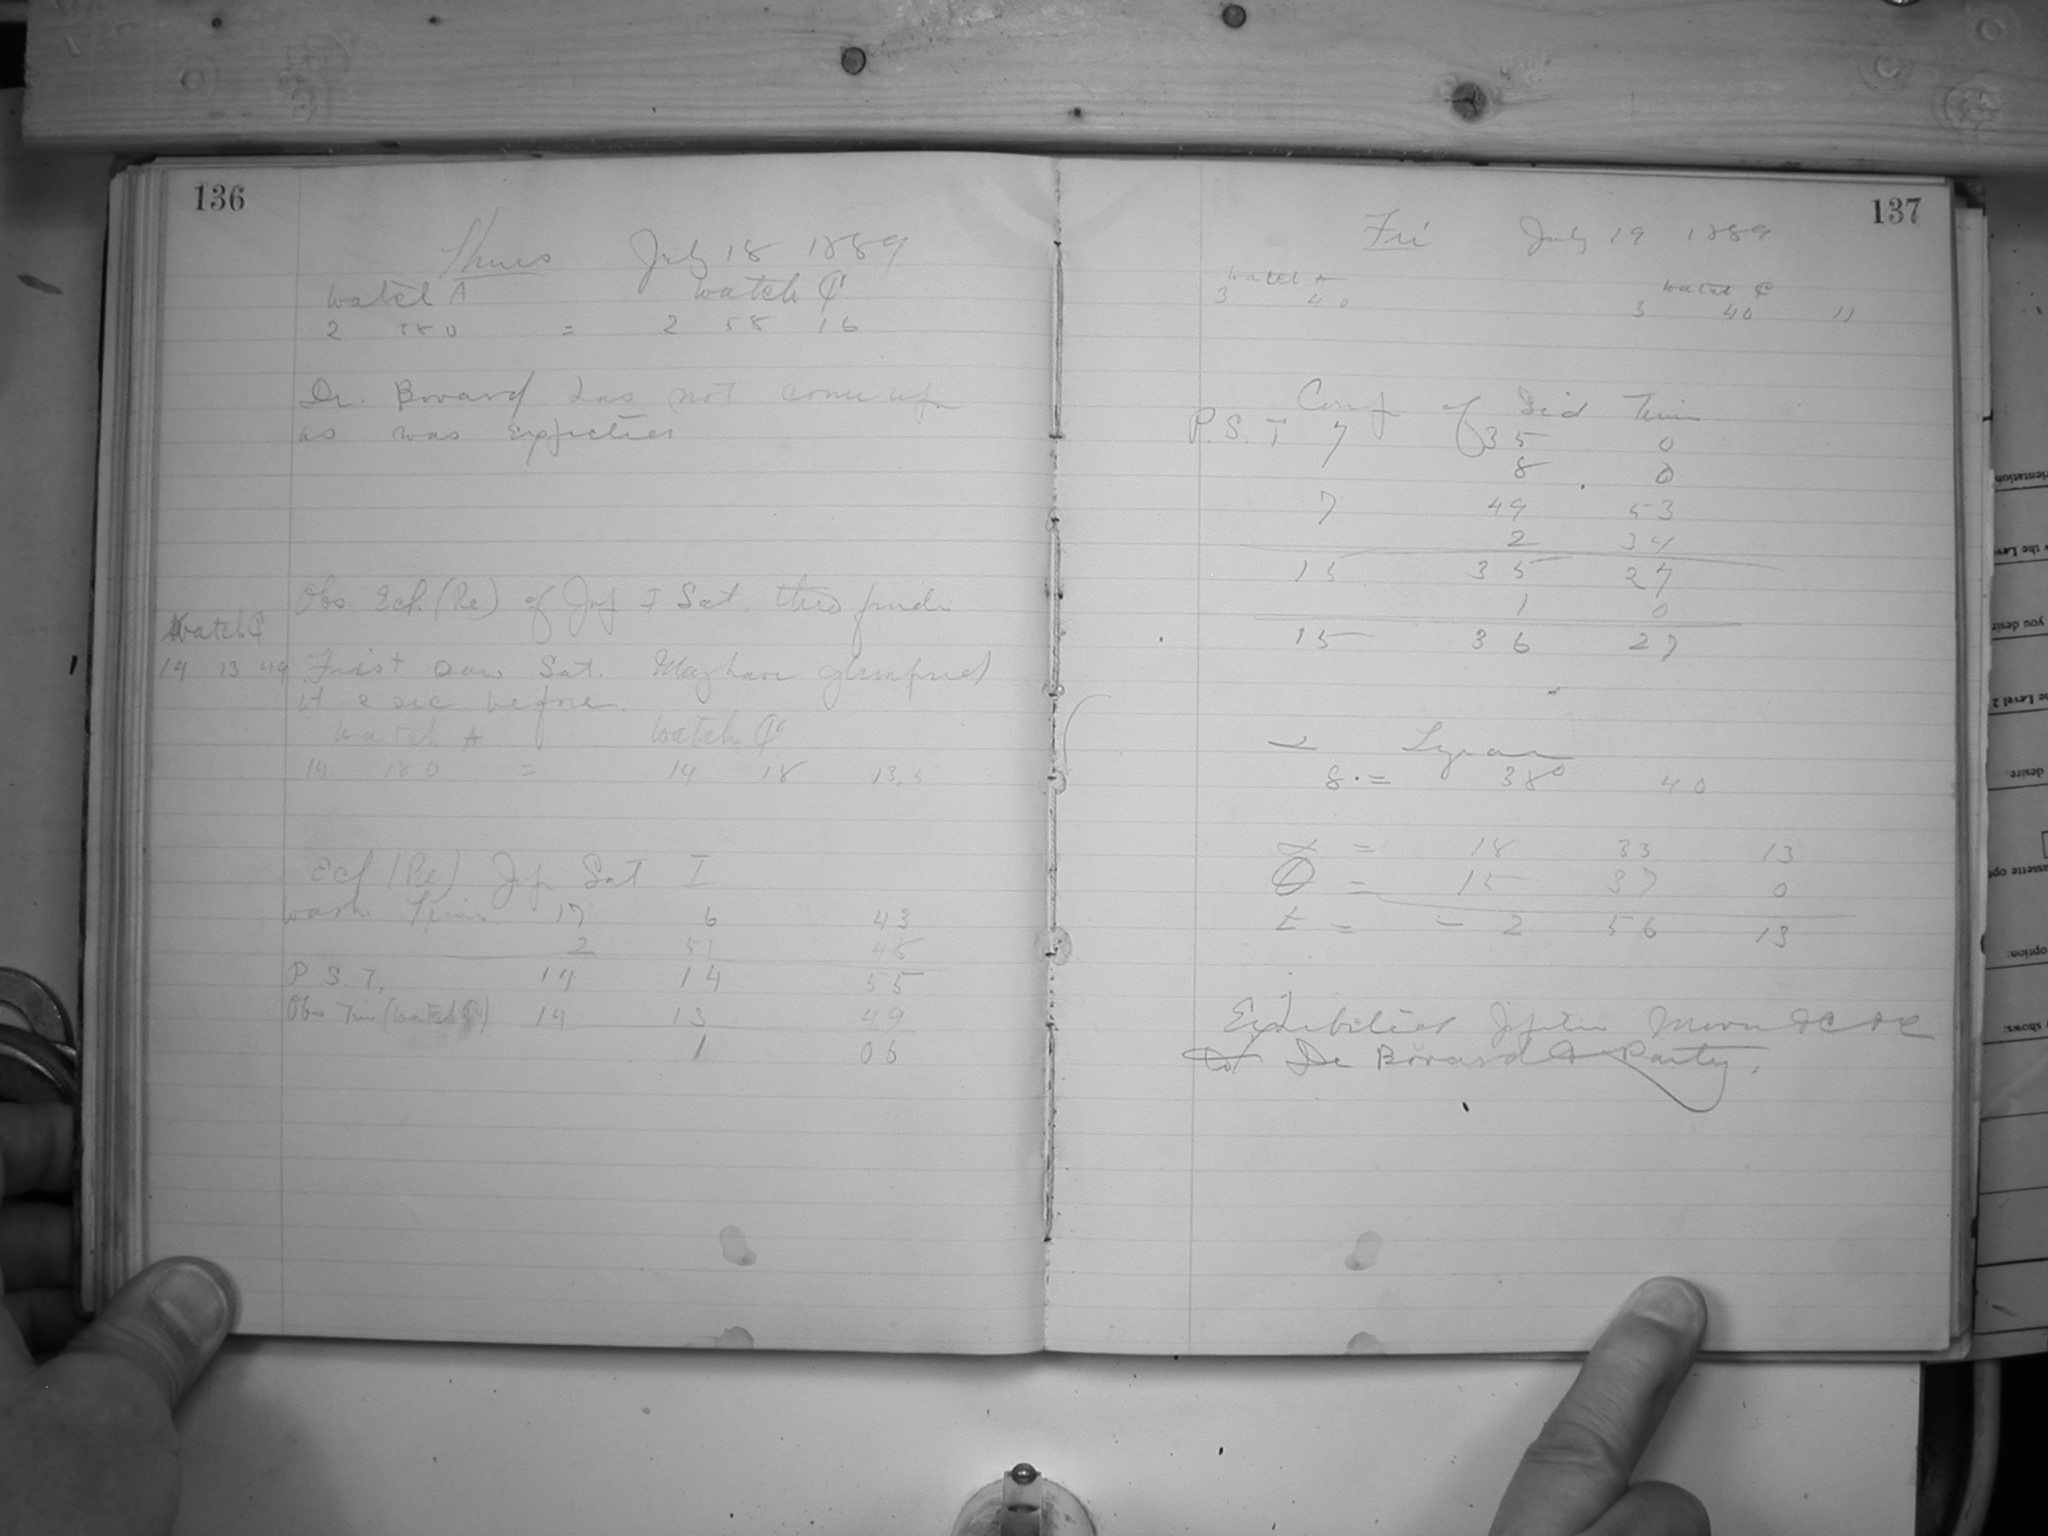 136
Thurs July 18 1889
Watch A Watch C
2 58 0 = 2 58 16
Dr. Bovard has not come up
as was expected
Obs Ecl. (Re) of Jup I Sat. thro finder
Watch C
14 13 49 First saw Sat. glimpsed
it 2 sec before.
Watch A Watch C
14 18 0 = 14 18 13.5
Ecl (Re) Jup Sat I
Wash Time 17 6 43
2 51 48
P. S. T. 14 14 55
Obs Tim (Watch C) 14 13 49
1 06
137
Fri July 19 1889
Watch A Watch C
3 40 3 40 11
Comp of Sid Time
P. S. T 7 35 0
8 0
7 49 53
2 34
15 35 27
1 0
15 36 27
α Lyrae
δ = 38° 40
α = 18 33 13
θ = 15 37 0
t = - 2 56 13
Exhibited Jupiter Moon &c &c
to Dr Bovard & Party.
rientation
the Leve
you desir
he Level 2
desire.
assette opt
option:
shows: